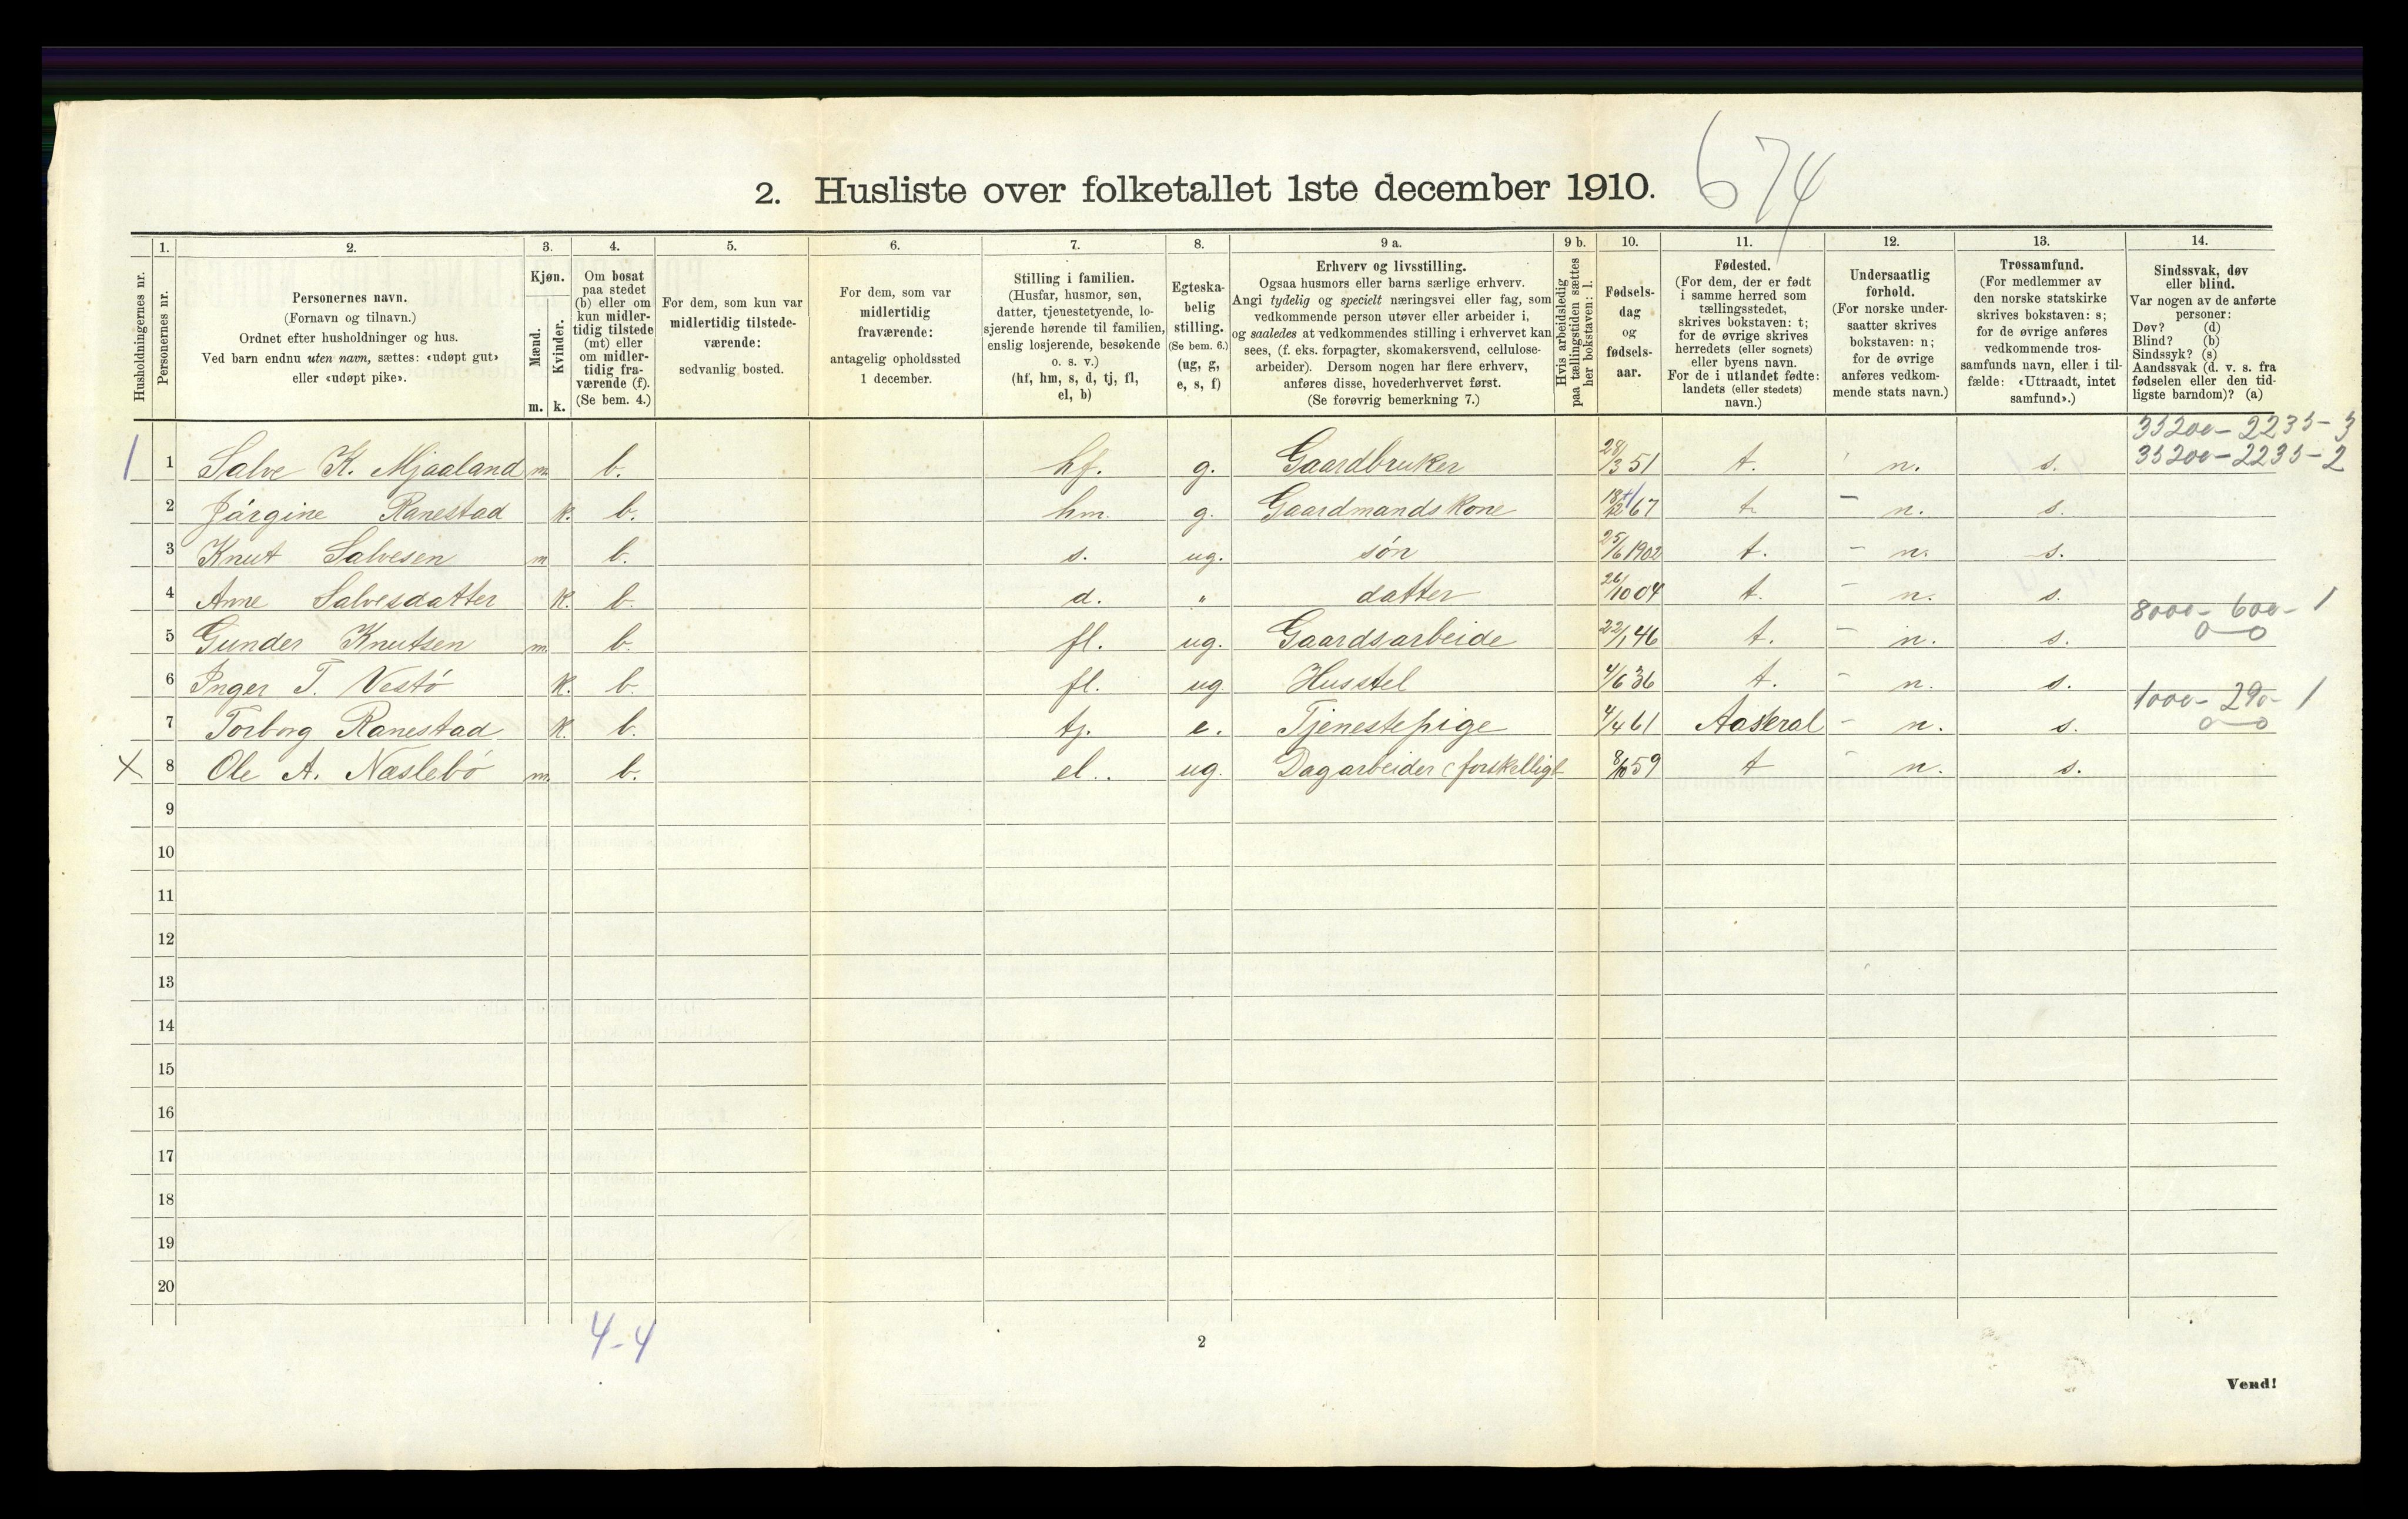 674
2. Husliste over folketallet 1ste december 1910.
Husholdningernes nr.
1. Personernes nr.
2. Personernes navn.
(Fornavn og tilnavn.)
Ordnet efter husholdninger og hus.
Ved barn endnu uten navn, sættes: «udøpt gut»
eller «udøpt pike».
3. Kjøn.
Mænd. m.
Kvinder. k.
4. Om bosat
paa stedet
(b) eller om
kun midler-
tidig tilstede
(mt) eller
om midler-
tidig fra-
værende (f).
(Se bem. 4.)
5. For dem, som kun var
midlertidig tilstede-
værende:
sedvanlig bosted.
6. For dem, som var
midlertidig
fraværende:
antagelig opholdssted
1 december.
7. Stilling i familien.
(Husfar, husmor, søn,
datter, tjenestetyende, lo-
sjerende hørende til familien,
enslig losjerende, besøkende
o. s. v.)
(hf, hm, s, d, tj, fl,
el, b)
8. Egteska-
belig
stilling.
(Se bem. 6.)
(ug, g,
e, s, f)
9 a. Erhverv og livsstilling.
Ogsaa husmors eller barns særlige erhverv.
Angi tydelig og specielt næringsvei eller fag, som
vedkommende person utøver eller arbeider i,
og saaledes at vedkommendes stilling i erhvervet kan
sees, (f. eks. forpagter, skomakersvend, cellulose-
arbeider). Dersom nogen har flere erhverv,
anføres disse, hovederhvervet først.
(Se forøvrig bemerkning 7.)
9 b. Hvis arbeidsledig
paa tællingstiden sættes
her bokstaven: l.
10. Fødsels-
dag
og
fødsels-
aar.
11. Fødested.
(For dem, der er født
i samme herred som
tællingsstedet,
skrives bokstaven: t;
for de øvrige skrives
herredets (eller sognets)
eller byens navn.
For de i utlandet fødte:
landets (eller stedets)
navn.)
12. Undersaatlig
forhold.
(For norske under-
saatter skrives
bokstaven: n;
for de øvrige
anføres vedkom-
mende stats navn.)
13. Trossamfund.
(For medlemmer av
den norske statskirke
skrives bokstaven: s;
for de øvrige anføres
vedkommende tros-
samfunds navn, eller i til-
fælde: «Uttraadt, intet
samfund».)
14. Sindssvak, døv
eller blind.
Var nogen av de anførte
personer:
Døv? (d)
Blind? (b)
Sindssyk? (s)
Aandssvak (d. v. s. fra
fødselen eller den tid-
ligste barndom)? (a)
35200 - 2235 - 3
1 1 Salve K. Mjaaland m. b. hf. g. Gaardbruker 28/3 51 t. n. s. 35200 - 2235 - 2
2 Jørgine Ranestad k. b. hm. g. Gaardmandskone 18/12 67 t. - n. s.
3 Knut Salvesen m b. s. ug. søn 25/6 1902 t. - n. s.
4 Anne Salvesdatter k. b. d. " datter 26/10 04 t. - n. s.
8000 - 600 - 1
5 Gunder Knutsen m. b. fl. ug. Gaardsarbeide 22/1 46 t. - n. s. 0-0
6 Inger T. Vestø k. b. fl. ug Husstel 4/6 36 t. - n. s.
1000 - 290 - 1
7 Torborg Ranestad k. b. tj. e. Tjenestepige 4/4 61 Aaseral - n. s. 0-0
X 8 Ole A. Næslebø m. b. el. ug. Dagarbeider (forskelligt 8/10 59 t - n. s.
9
10
11
12
13
14
15
16
17
18
19
20
4-4
2
Vend!